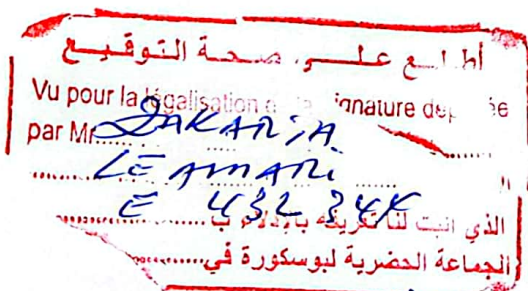 أطلع على صحة التوقيع
Vu pour la légalisation de la signature dép ée
par Mr ZAKARIA
LEAMARI
E 432 344
الذي اثبت لنا تعريفه بالإدلاء ب
الجماعة الحضرية لبوسكورة في